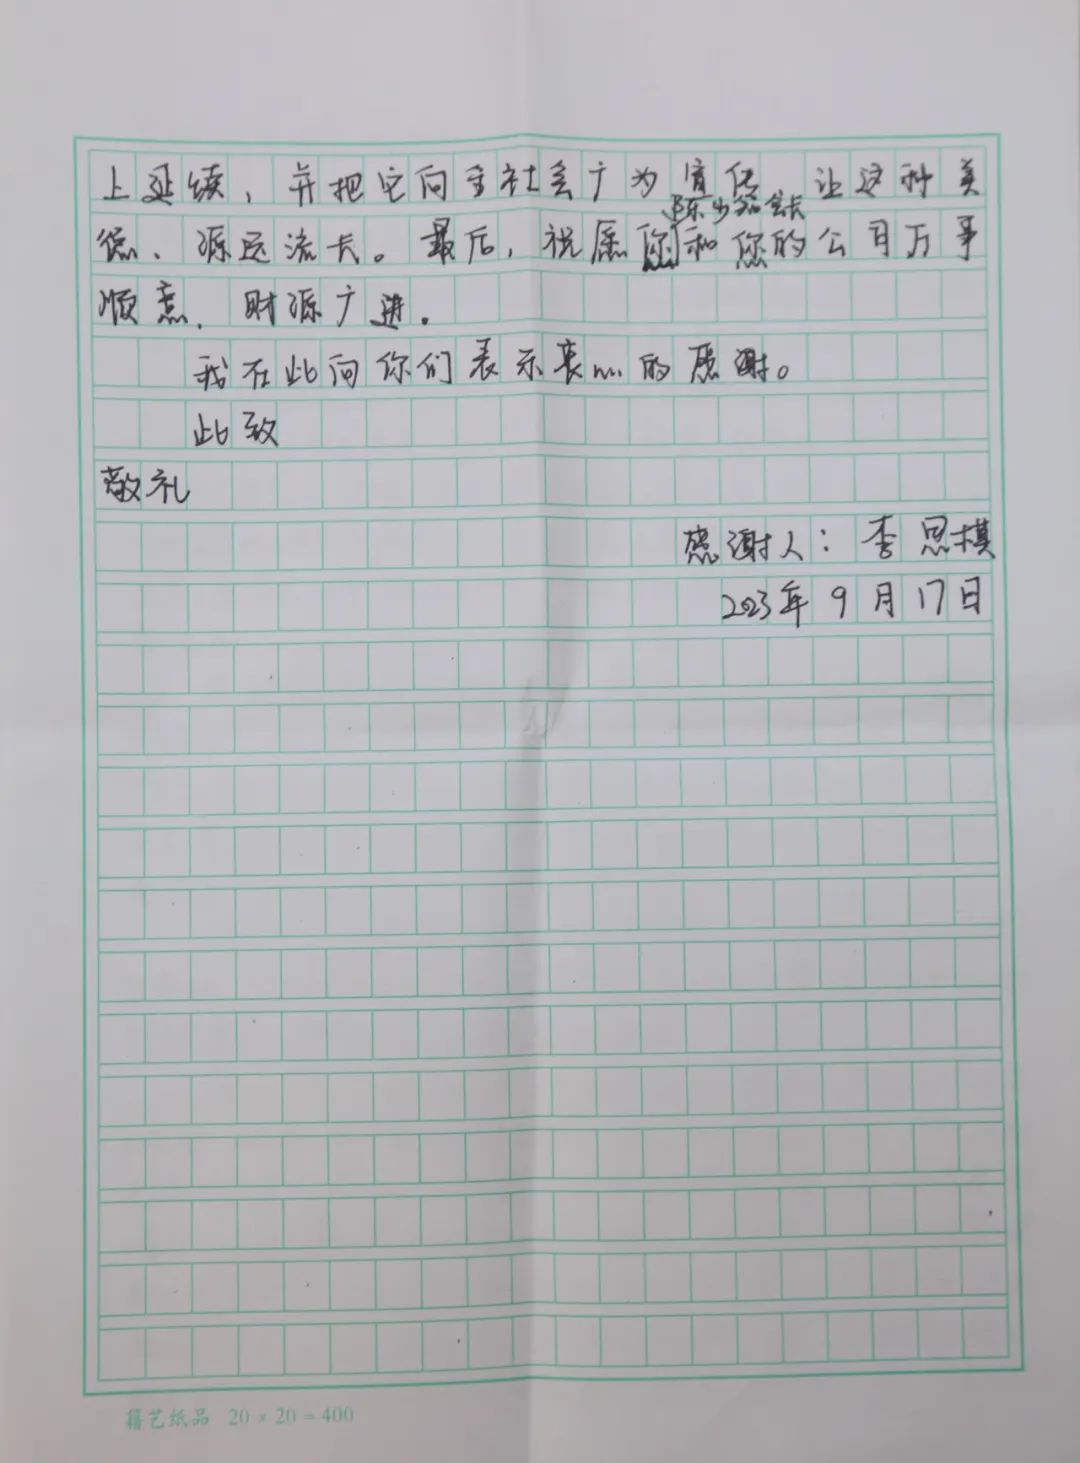 上延续，并把它向全社会广为宣传 让这种美
陈 会长
德、源远流长。最后，祝愿您和您的公司万事
顺意、财源广进。
我在此向你们表示衷心的感谢。
此致
敬礼
感谢人：李思棋
2023年9月17日
籍艺纸品 20×20=400